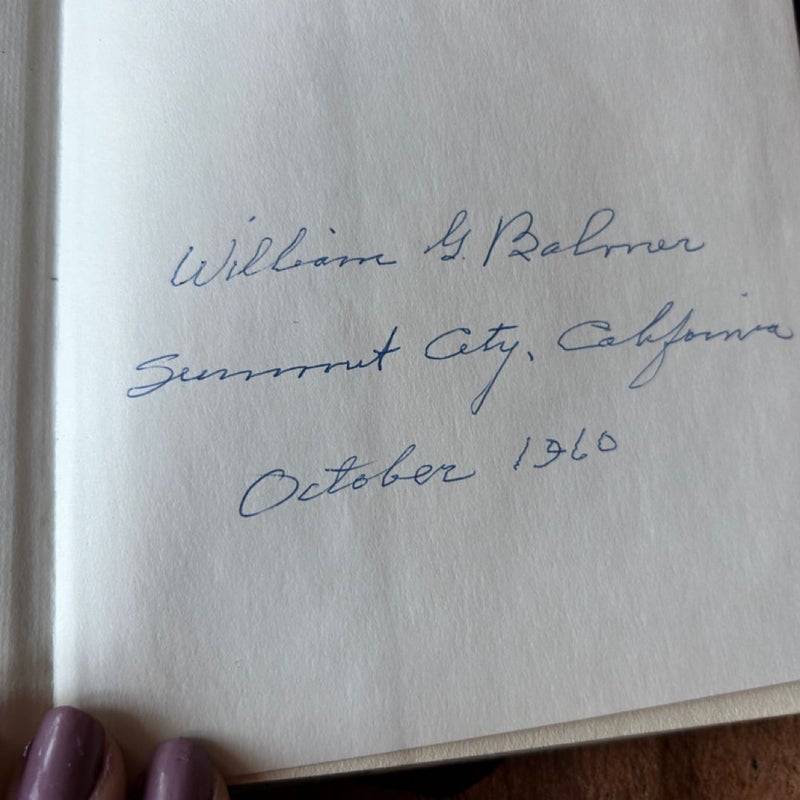 William G. Balmer
Summit City, California
October 1960